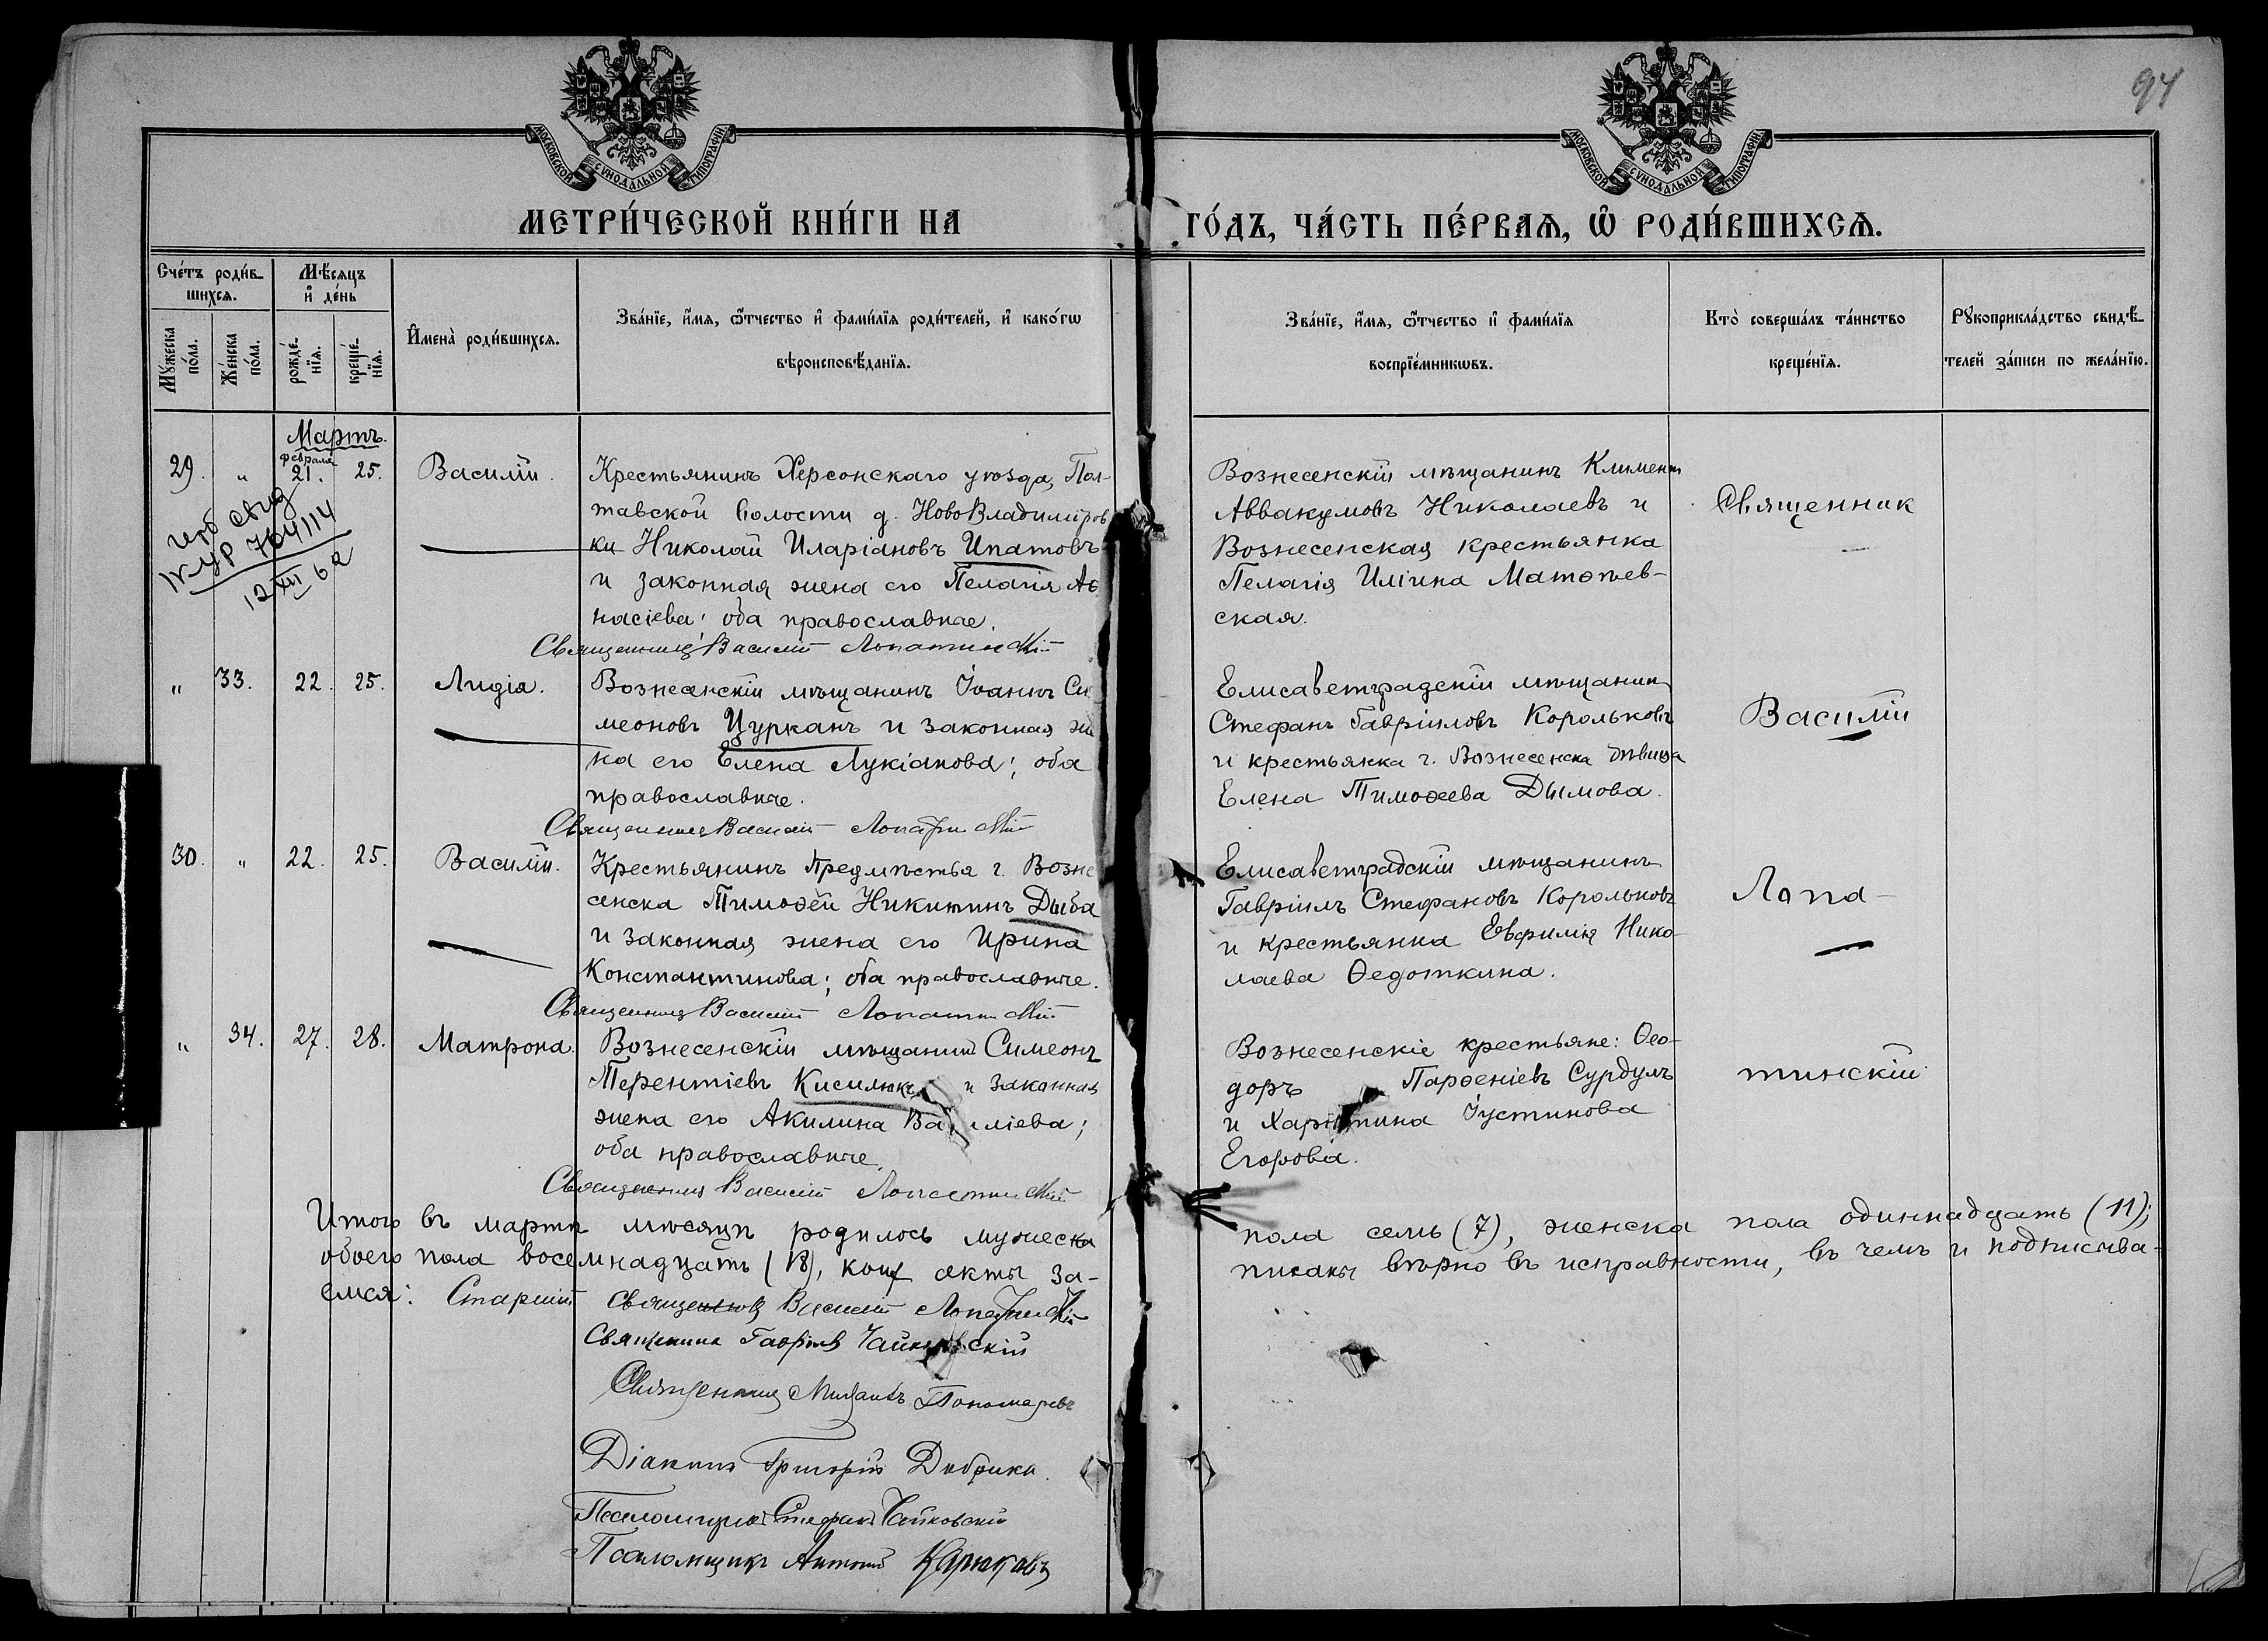 94
МОСКОВСКОЙ СѴНОДАЛЬНОЙ ТИПОГРАФІИ
МОСКОВСКОЙ СѴНОДАЛЬНОЙ ТИПОГРАФІИ
МЕТРИ́ЧЕСКОЙ КНИ́ГИ НА ГО́ДЪ, ЧА́СТЬ ПЕ́РВАѦ, Ѽ РОДИ́ВШИХСѦ.
Сче́тъ роди́в-
шихсѧ.
Мꙋ́жеска по́ла.
Же́нска по́ла.
Мѣ́сѧцъ
и҆ де́нь
рожде́-
нїѧ.
креще́-
нїѧ.
И҆мена̀ роди́вшихсѧ.
Зва́нїе, и҆́мѧ, ѻ҆́тчество и҆ фами́лїѧ роди́телей, и҆ како́гѡ
вѣроисповѣ́данїѧ.
Зва́нїе, и҆́мѧ, ѻ҆́тчество и҆ фами́лїѧ
воспрїе́мникѡвъ.
Кто̀ соверша́лъ та́инство
креще́нїѧ.
Рꙋкоприкла́дство свидѣ́-
телей за́писи по жела́нїю.
Мартъ.
февраля
29. " 21. 25. Василій.
Крестьянинъ Херсонскаго уѣзда, Пол-
тавской волости д. НовоВладиміров
ки Николай Иларіановъ Ипатовъ
и законная жена его Пелагія Аѳ
насіева; оба православные.
Священникъ Василій Лопатинскій
Вознесенскій мѣщанинъ Климент
Аввакумовъ Николаевъ и
Вознесенская крестьянка
Пелагія Иліина Матѳіев-
ская.
Священник
764114
12 XII 62
" 33. 22. 25. Лидія.
Вознесенскій мѣщанинъ Іоаннъ Си
меоновъ Цурканъ и законная же
на его Елена Лукіанова; оба
православные.
Священникъ Василій Лопатинскій
Елисаветградскій мѣщанинъ
Стефанъ Гавріиловъ Корольковъ
и крестьянка г. Вознесенска дѣвица
Елена Тимоѳеева Дымова.
Василій
30. " 22. 25. Василій.
Крестьянинъ предмѣстья г. Возне
сенска Тимоѳей Никитинъ Дыба
и законная жена его Ирина
Константинова; оба православные.
Священникъ Василій Лопатинскій
Елисаветградскій мѣщанинъ
Гавріилъ Стефановъ Корольковъ
и крестьянка Евфимія Нико-
лаева Ѳедоткина.
Лопа-
" 34. 27. 28. Матрона.
Вознесенскій мѣщанинъ Симеонъ
Терентіевъ Кисилюкъ и законная
жена его Акилина Василіева;
оба православные.
Священникъ Василій Лопатинскій
Вознесенскіе крестьяне: Ѳео-
доръ Парѳеніевъ Сурдулъ
и Харитина Іустинова
Егорова.
тинскій
Итого въ мартѣ мѣсяцѣ родилось мужеска пола семь (7), женска пола одиннадцать (11);
обоего пола восемнадцать (18), коих акты за- писаны вѣрно въ исправности, въ чемъ и подписыва-
емся: Старшій Священникъ Василій Лопатинскій
Священникъ Гавріилъ Чайковскій
Священникъ Михаилъ Пономаревъ
Діаконъ Григорій Добрика.
Псаломщикъ Стефанъ Чайковскій
Псаломщикъ Антоній